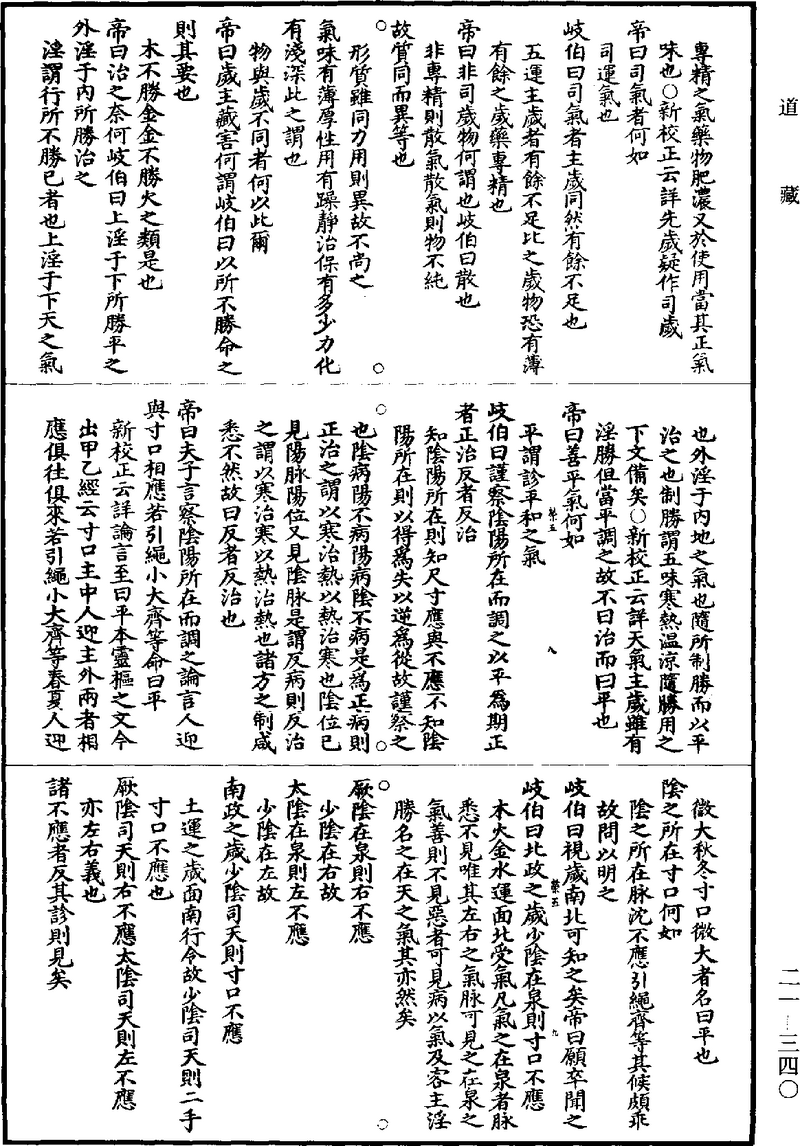 道藏
專精之氣藥物肥濃又於使用當其正氣
味也○新校正云詳先歲疑作司歲
帝曰司氣者何如
司運氣也
岐伯曰司氣者主歲同然有餘不足也
五運主歲者有餘不足比之歲物恐有薄
有餘之歲藥專精也
帝曰非司歲物何謂也岐伯曰散也
非專精則散氣散氣則物不純
故質同而異等也
形質雖同力用則異故不尚之
氣味有薄厚性用有躁靜治保有多少力化
有淺深此之謂也
物與歲不同者何以此爾
帝曰歲主藏害何謂岐伯曰以所不勝命之
則其要也
木不勝金金不勝火之類是也
帝曰治之奈何岐伯曰上淫于下所勝平之
外淫于内所勝治之
淫謂行所不勝已者也上淫于下天之氣
也外淫于内地之氣也隨所制勝而以平
治之也制勝謂五味寒熱温涼隨勝用之
下文備矣○新校正云詳天氣主歲雖有
淫勝但當平調之故不曰治而曰平也
帝曰善平氣何如
平謂診平和之氣
岐伯曰謹察陰陽所在而調之以平爲期正
者正治反者反治
知陰陽所在則知尺寸應與不應不知陰
陽所在則以得爲失以逆爲從故謹察之
也陰病陽不病陽病陰不病是爲正病則
正治之謂以寒治熱以熱治寒也陰位已
見陽脉陽位又見陰脉是謂反病則反治
之謂以寒治寒以熱治熱也諸方之制咸
悉不然故曰反者反治也
帝曰夫子言察陰陽所在而調之論言人迎
與寸口相應若引繩小大齊等命曰平
新校正云詳論言至曰平本靈樞之文今
出甲乙經云寸口主中人迎主外兩者相
應俱往俱來若引繩小大齊等春夏人迎
微大秋冬寸口微大者名曰平也
陰之所在寸口何如
陰之所在脉沈不應引繩齊等其候頗乖
故問以明之
岐伯曰視歲南北可知之矣帝曰願卒聞之
岐伯曰北政之歲少陰在泉則寸口不應
木火金水運面北受氣凡氣之在泉者脉
悉不見唯其左右之氣脉可見之在泉之
氣善則不見惡者可見病以氣及客主淫
勝名之在天之氣其亦然矣
厥陰在泉則右不應
少陰在右故
太陰在泉則左不應
少陰在左故
南政之歲少陰司天則寸口不應
土運之歲面南行令故少陰司天則二手
寸口不應也
厥陰司天則右不應太陰司天則左不應
亦左右義也
諸不應者反其診則見矣
二一—三四〇